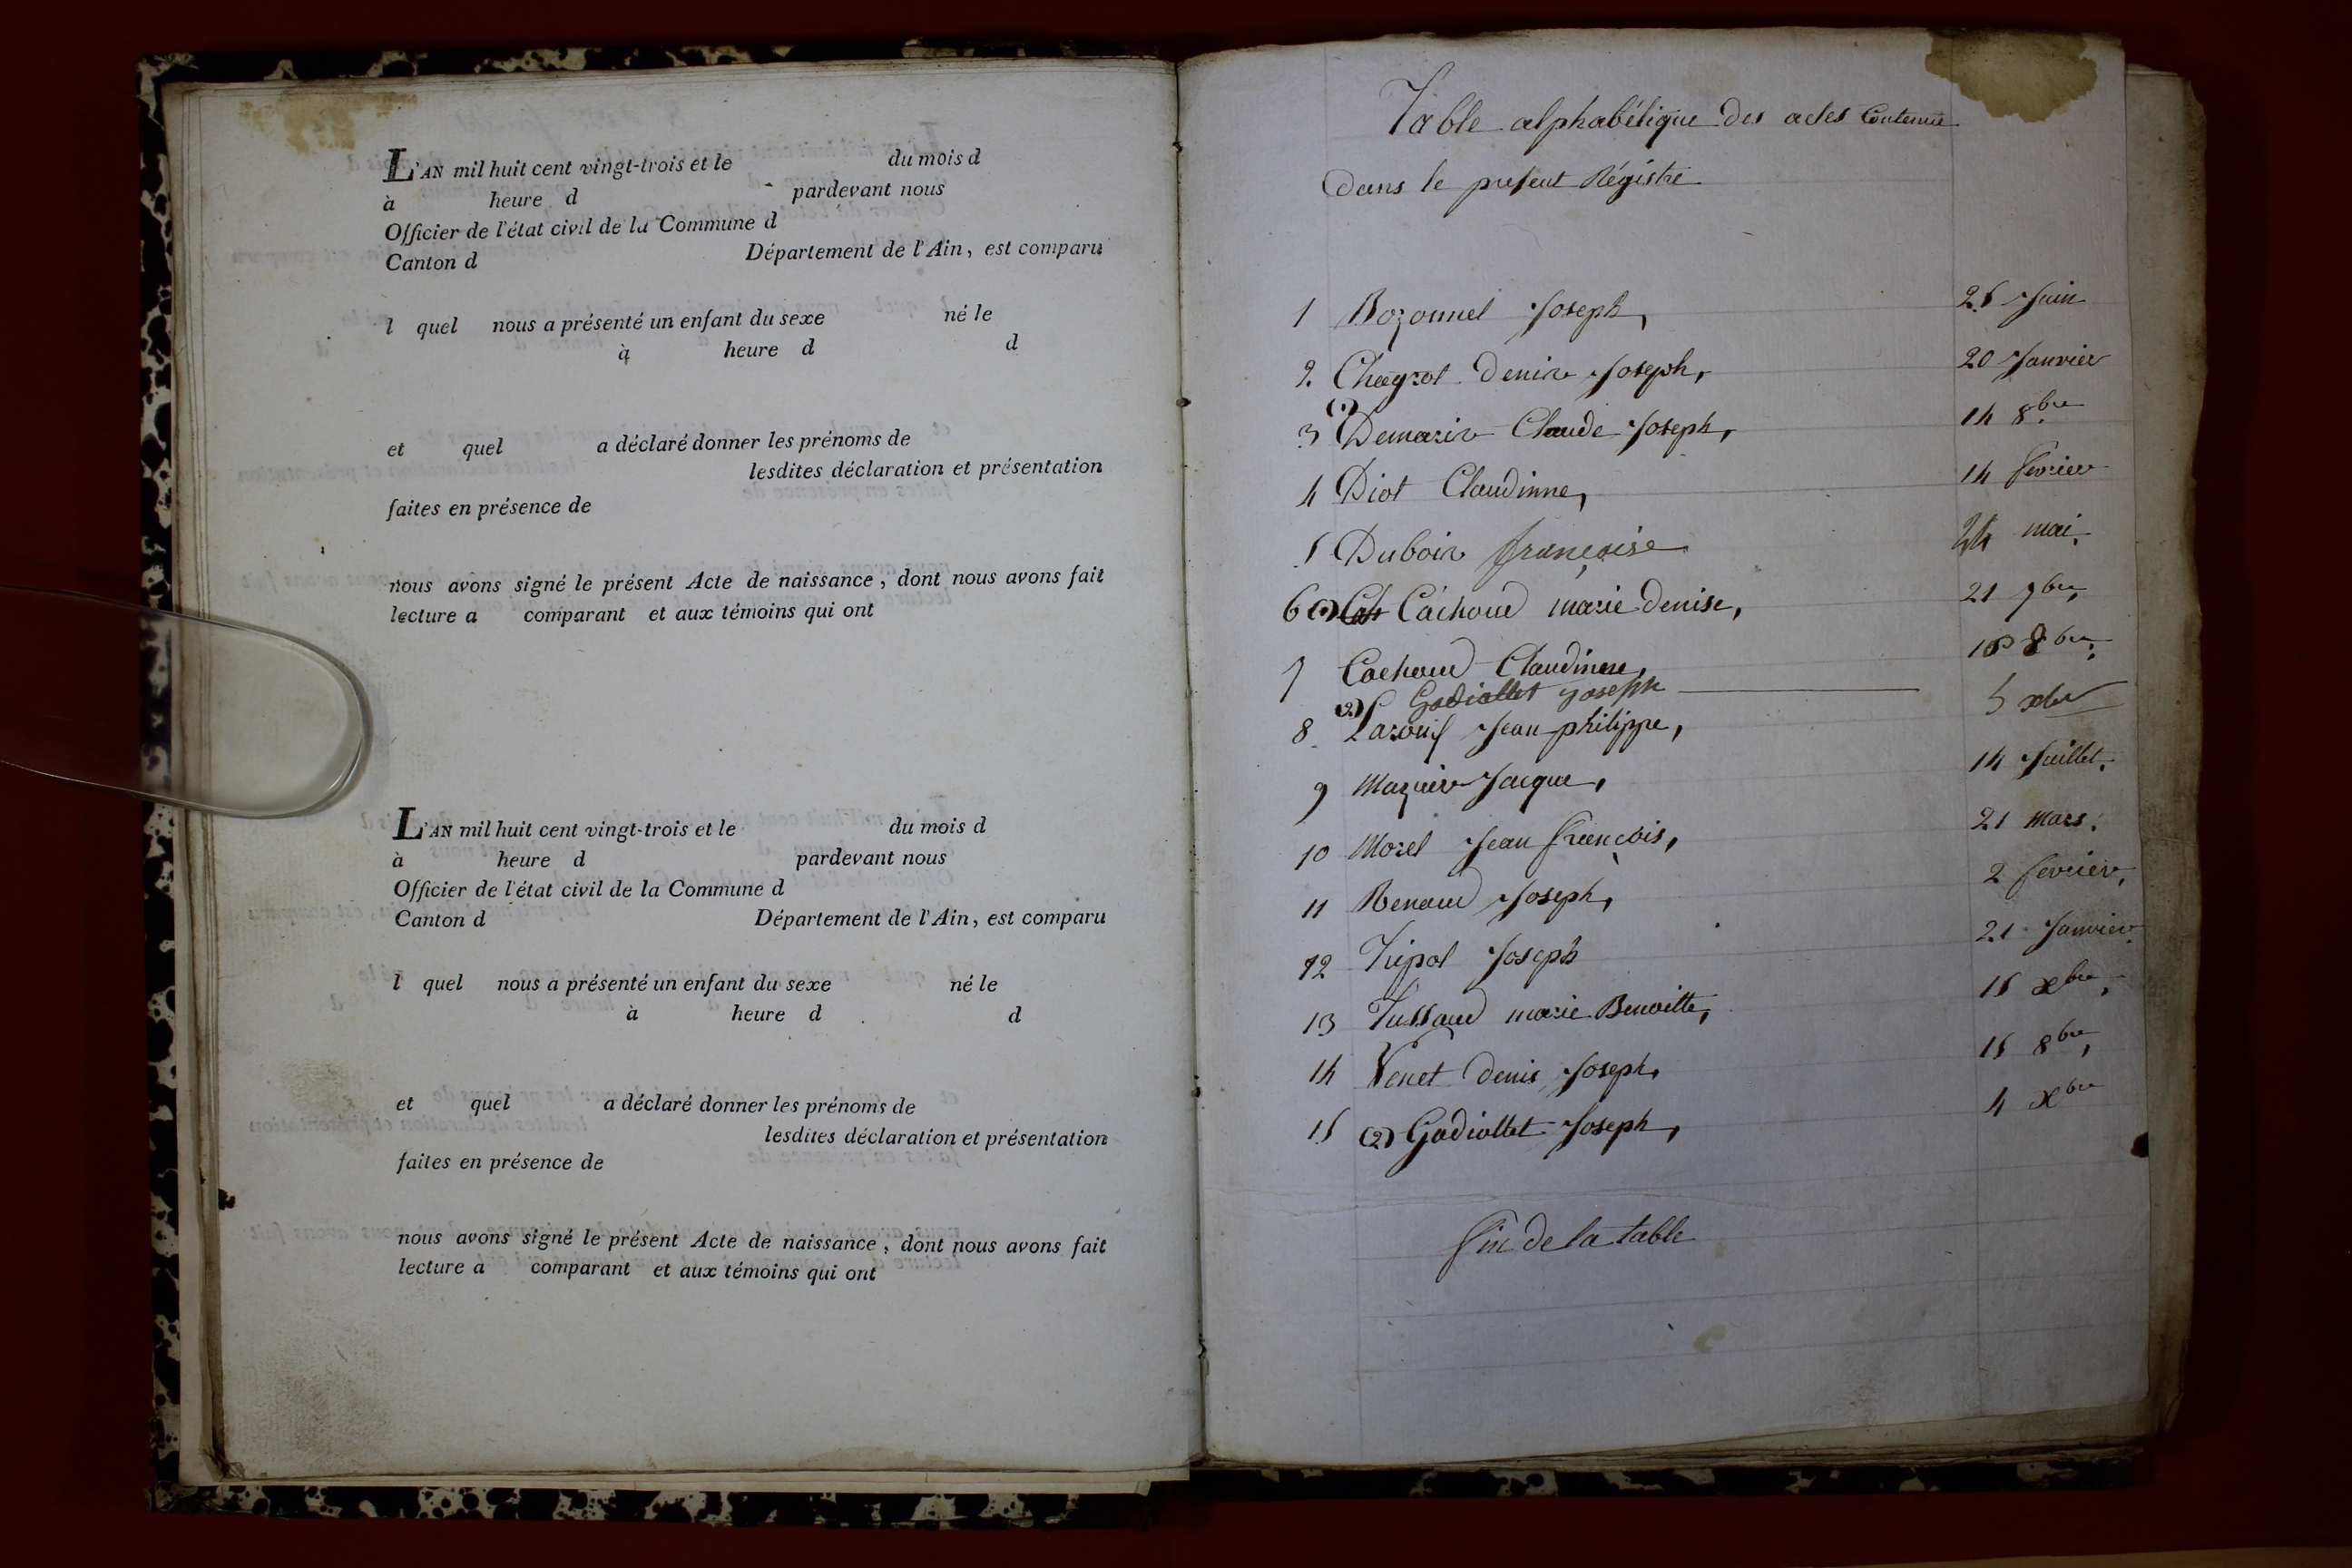 L'AN mil huit cent vingt-trois et le du mois d
à heure d pardevant nous
Officier de l'état civil de la Commune d
Canton d Département de l'Ain, est comparu
l quel nous a présenté un enfant du sexe né le
à heure d d
et quel a déclaré donner les prénoms de
lesdites déclaration et présentation
faites en présence de
nous avons signé le présent Acte de naissance, dont nous avons fait
lecture a comparant et aux témoins qui ont
L'AN mil huit cent vingt-trois et le du mois d
à heure d pardevant nous
Officier de l'état civil de la Commune d
Canton d Département de l'Ain, est comparu
l quel nous a présenté un enfant du sexe né le
à heure d d
et quel a déclaré donner les prénoms de
lesdites déclaration et présentation
faites en présence de
nous avons signé le présent Acte de naissance, dont nous avons fait
lecture a comparant et aux témoins qui ont
Table alphabétique des actes Contenue
dans le present Régistre
1 Bozonnet Joseph, 25 Juin
2. Joseph, 20 Janvier
(1)
3 Demarie Claude Joseph, 14 8bre
4 Diot Claudinne, 14 fevrier
5 Dubois françoise 24 mai.
6 (1) Cachoud marie denise, 21 9bre,
7 Cachoud Claudinne, 8bre.
(2) Gadiollet Joseph
8 Jean philippe, 5 xbre
9 Jacque, 14 Juillet.
10 Morel Jean françois, 21 Mars.
11 Renaud Joseph, 2 fevrier,
12 Joseph 21 Janvier.
13 Tussaud marie Benoitte, 15 xbre,
14 Venet denis Joseph, 15 8bre,
15 (2) Gadiollet Joseph, 4 xbre
fin de la table